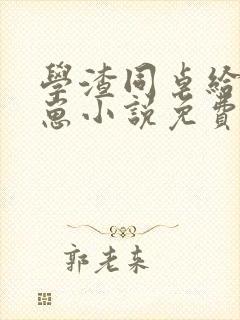 學渣同桌給
崽小說免費
郭老来